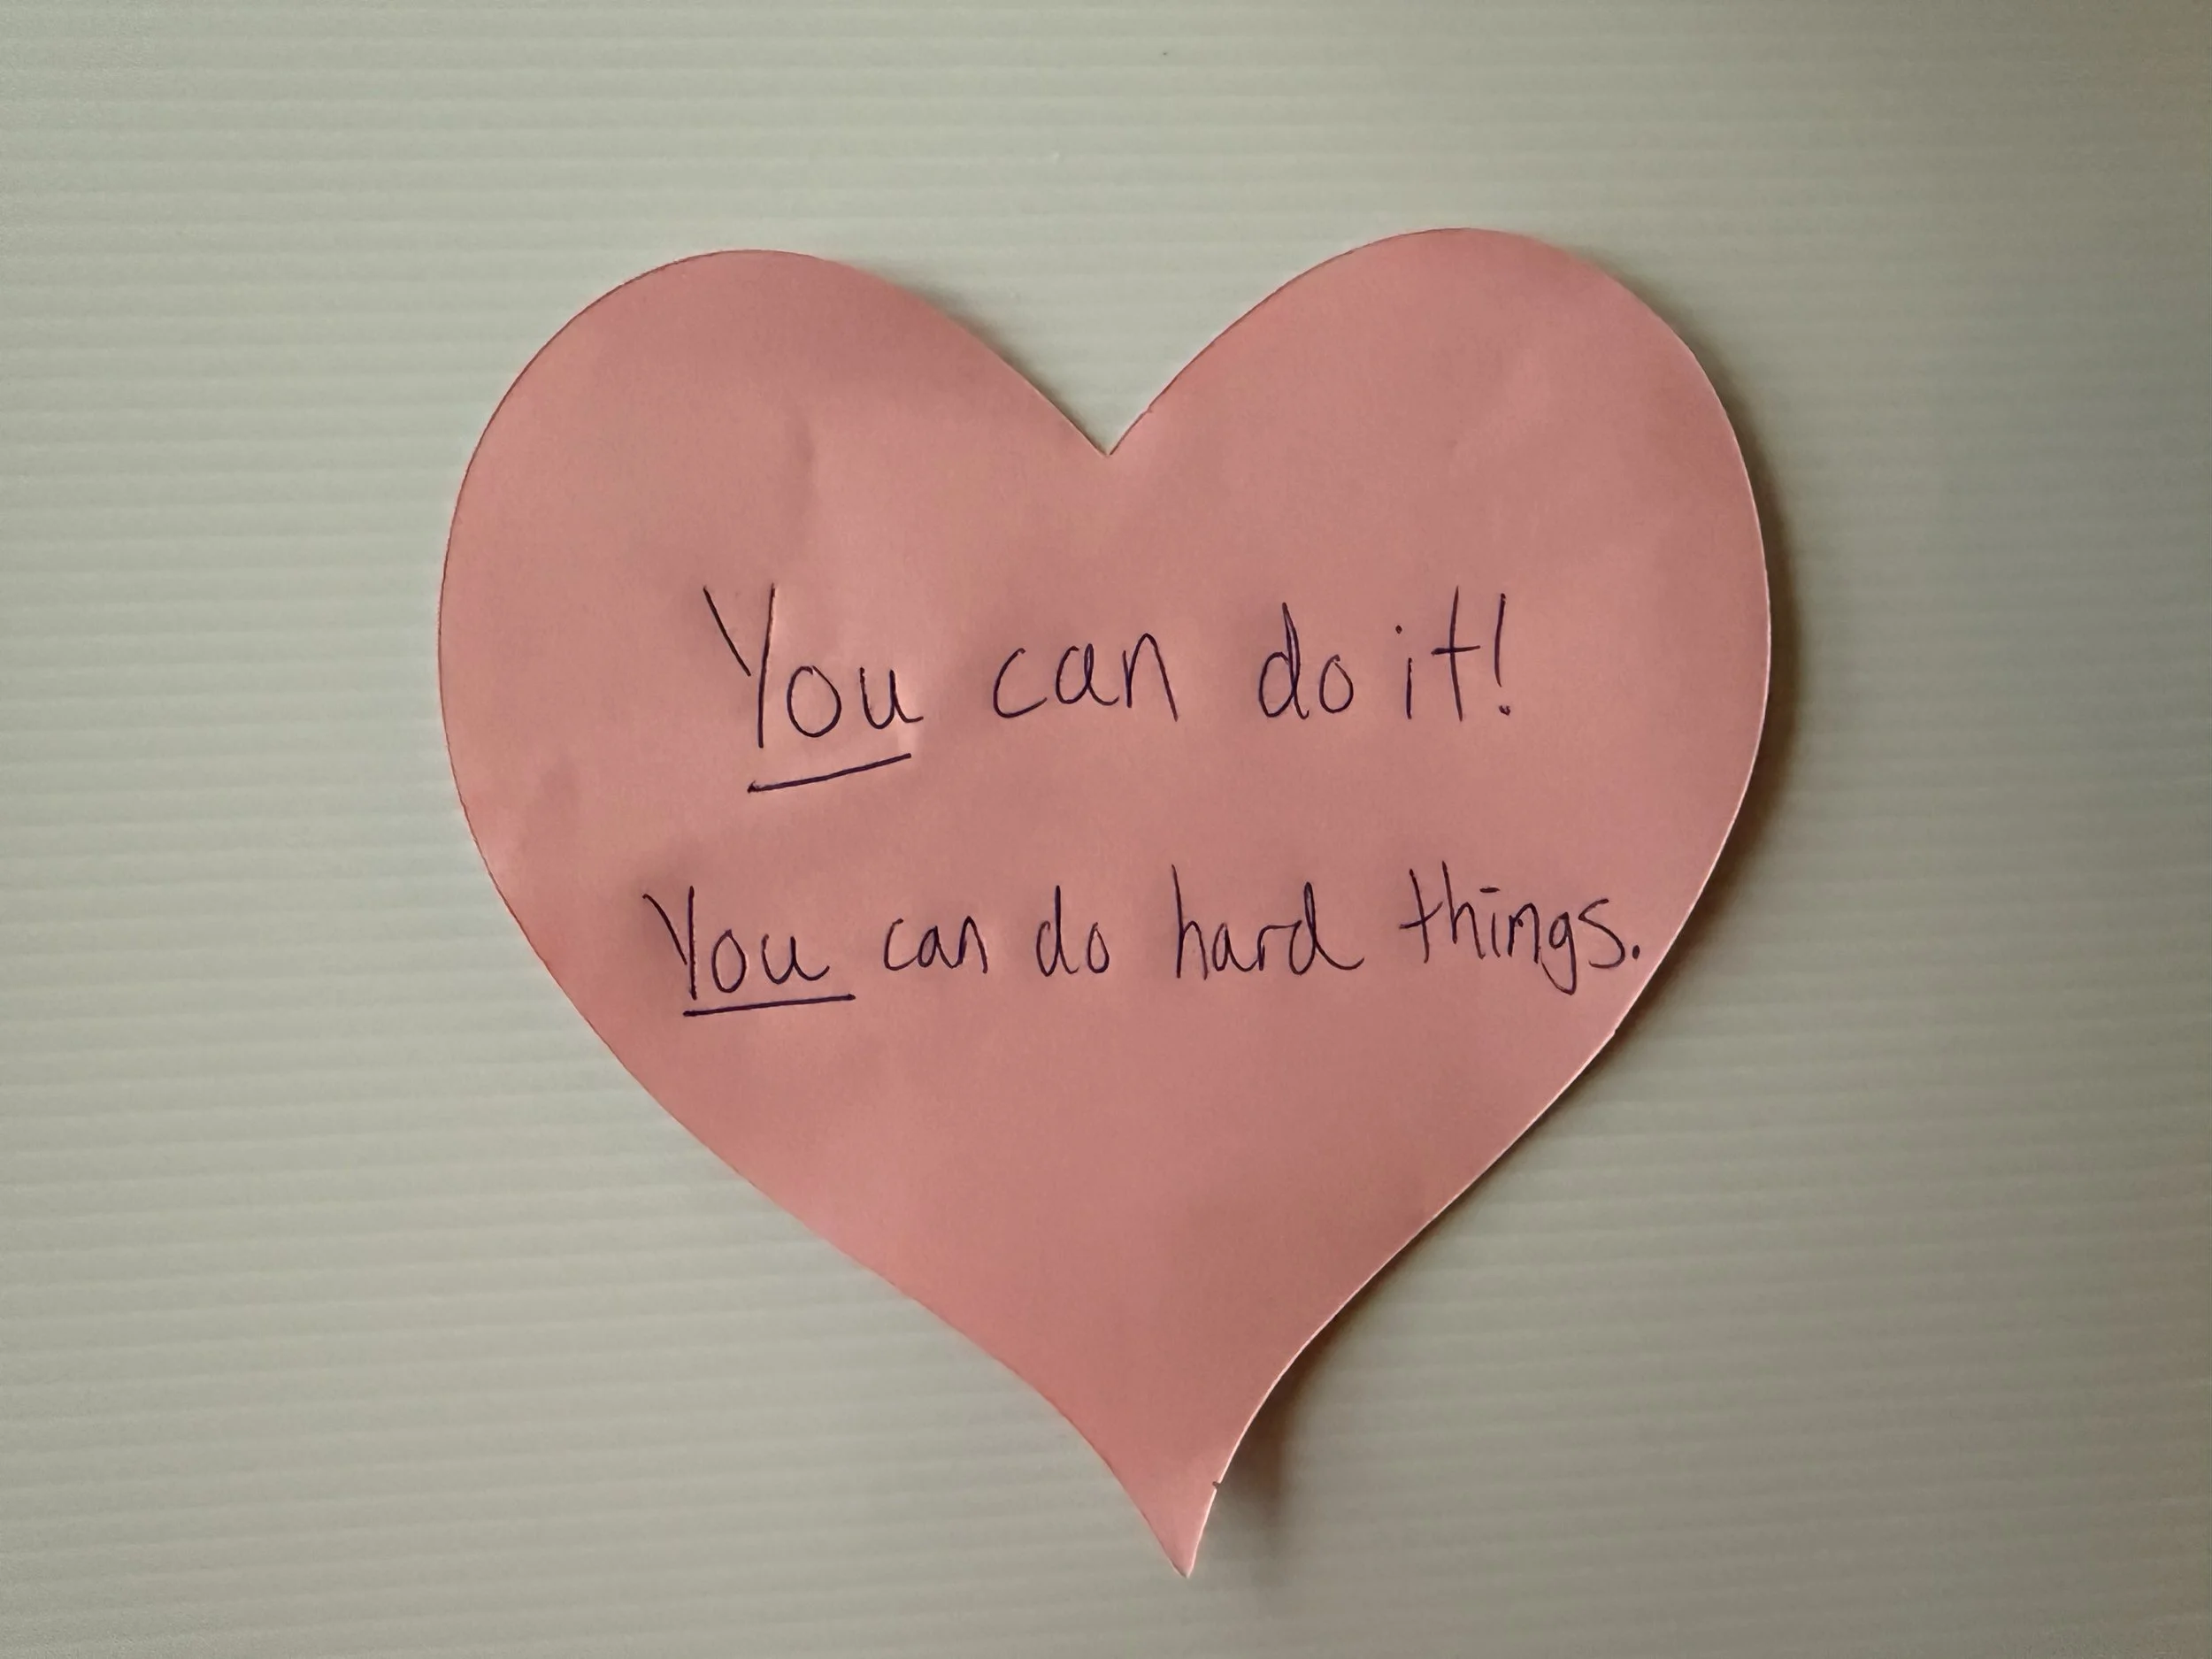 You can do it!
You can do hard things.